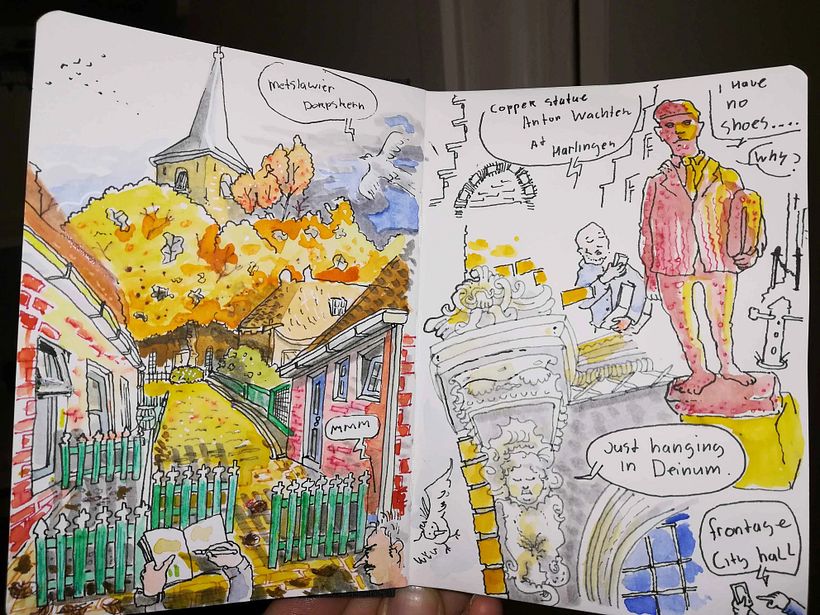 metslawier
Dorpskern
MMM
Copper statue
Anton Wachter
At Harlingen
I Have
no
shoes....
Why?
Just hanging
in Deinum.
frontage
City hall